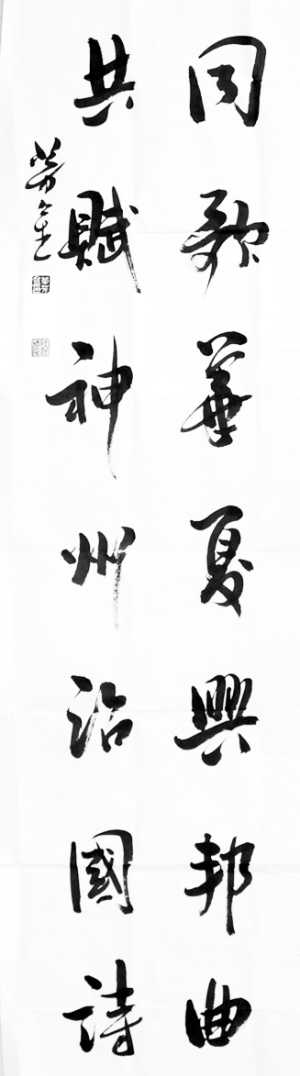 同歌華夏興邦曲
共賦神州治國詩